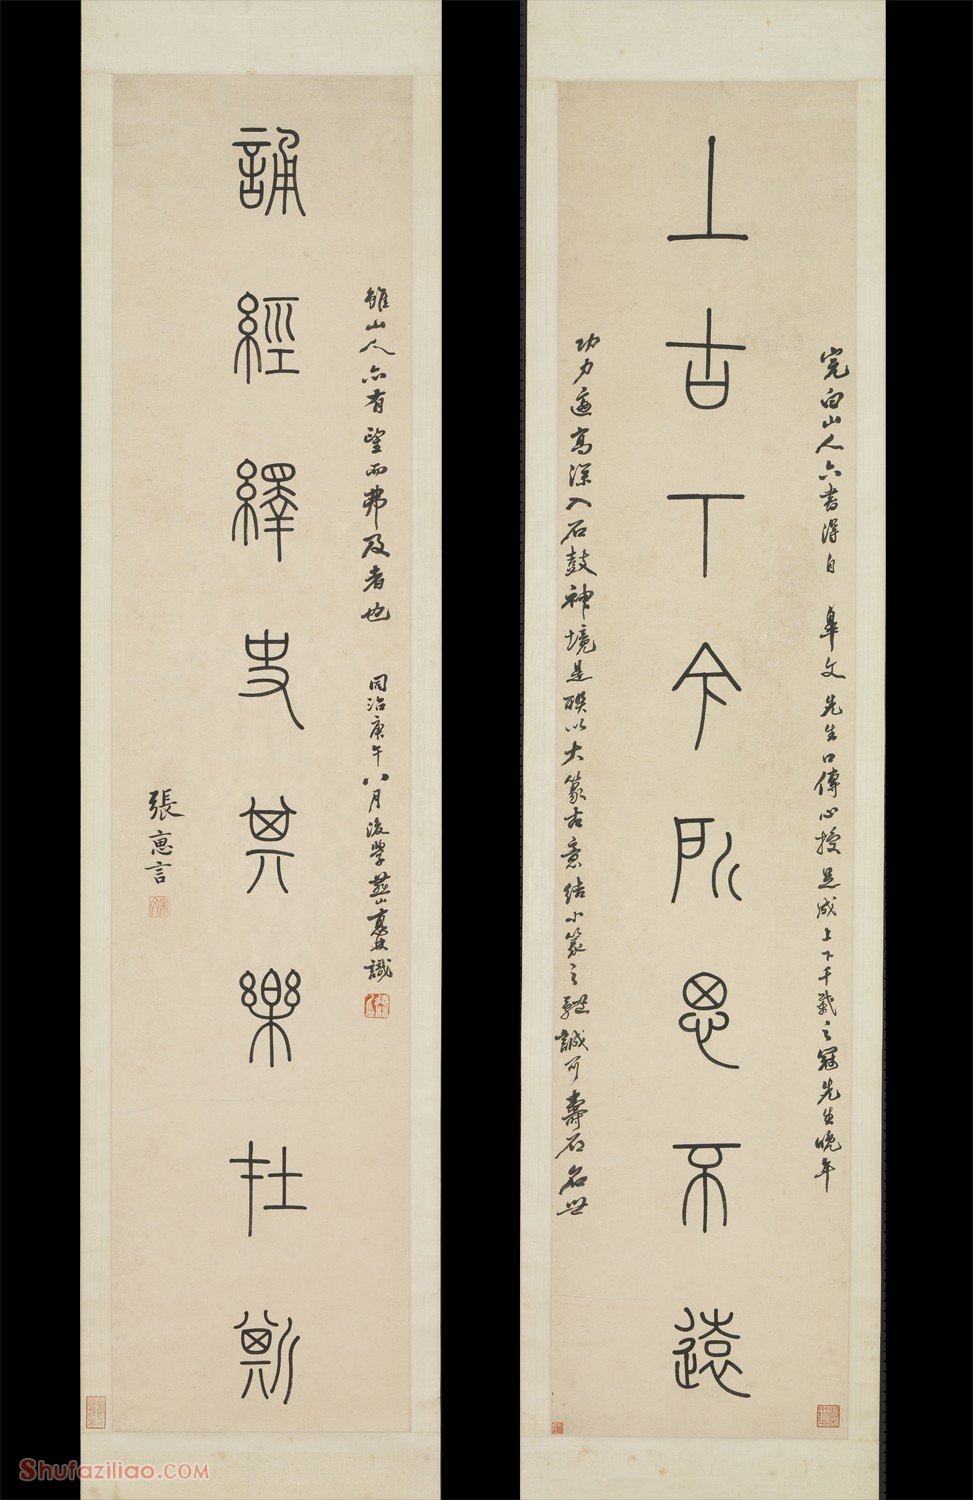 完白山人六書得自 皋文先生口傳心授是成上下千載之冠先生晚年
上古下今所思不遠
功力高深入石鼓神境是聯以大篆古意結小篆之軆誠可壽石名世
雖山人亦有望而弗及者也 同治庚午八月後學燕山識
誦經繹史其樂在斯
張惠言
Shufaziliao.COM